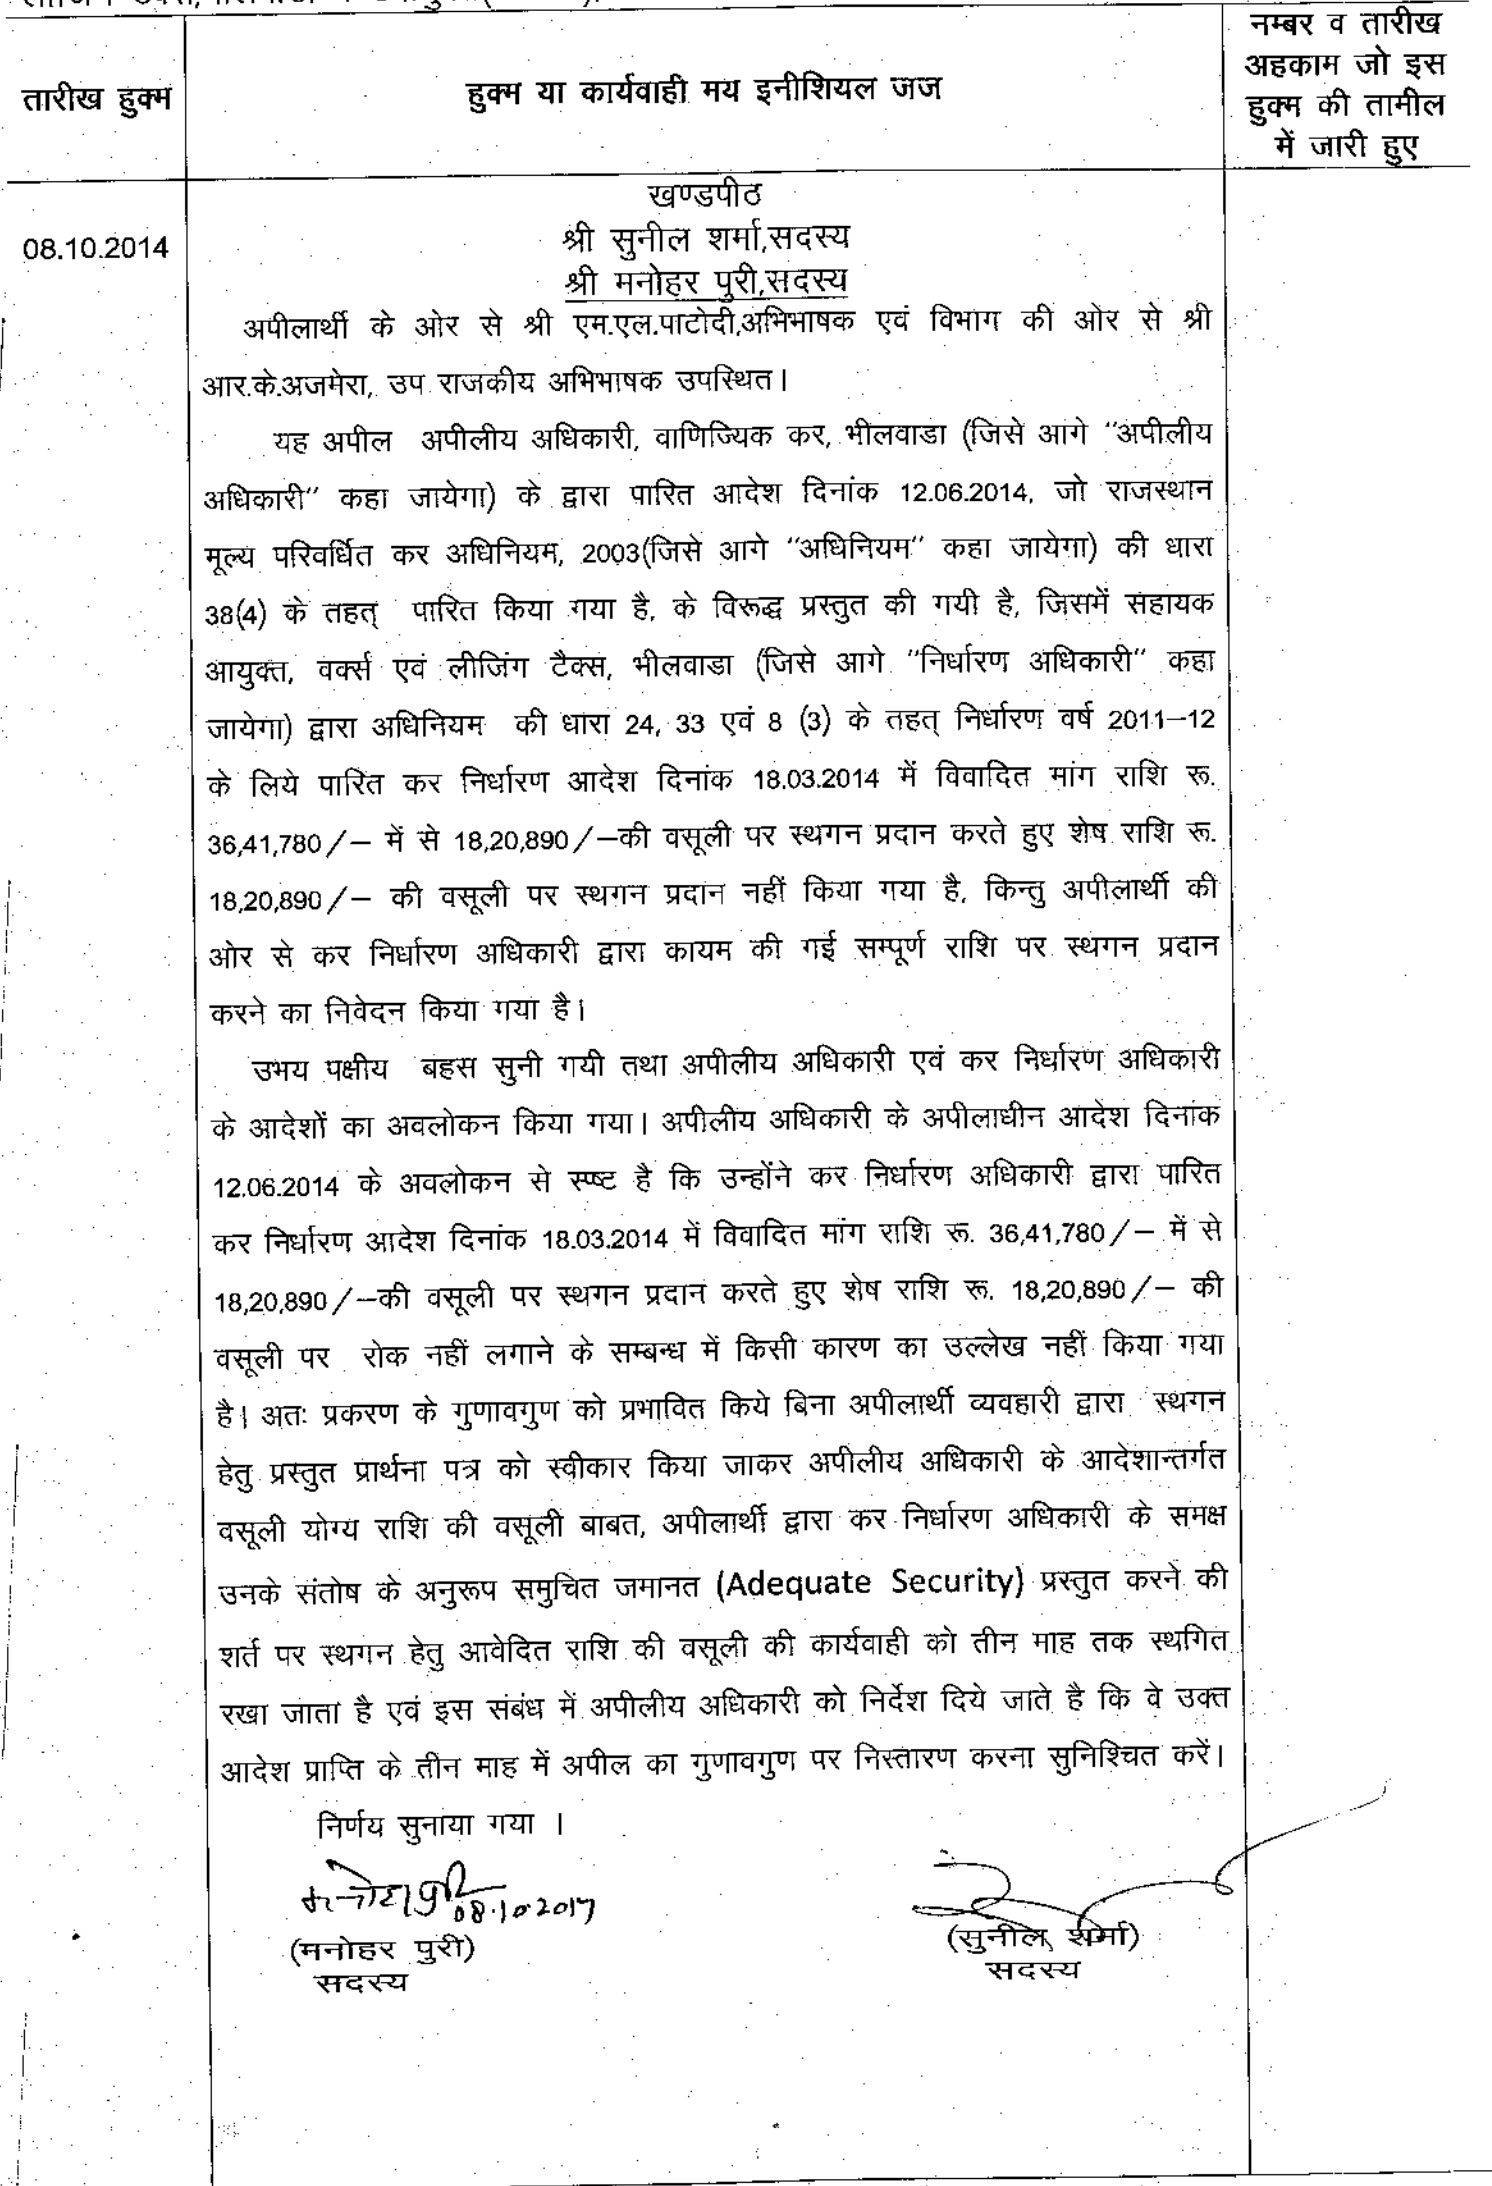 तारीख हुक्म
हुक्म या कार्यवाही मय इनीशियल जज
नम्बर व तारीख
अहकाम जो इस
हुक्म की तामील
में जारी हुए
08.10.2014
खण्डपीठ
श्री सुनील शर्मा,सदस्य
श्री मनोहर पुरी,सदस्य
अपीलार्थी के ओर से श्री एम.एल.पाटोदी,अभिभाषक एवं विभाग की ओर से श्री
आर.के.अजमेरा, उप राजकीय अभिभाषक उपस्थित।
यह अपील अपीलीय अधिकारी, वाणिज्यिक कर, भीलवाडा (जिसे आगे "अपीलीय
अधिकारी" कहा जायेगा) के द्वारा पारित आदेश दिनांक 12.06.2014, जो राजस्थान
मूल्य परिवर्धित कर अधिनियम, 2003(जिसे आगे "अधिनियम" कहा जायेगा) की धारा
38(4) के तहत् पारित किया गया है, के विरूद्ध प्रस्तुत की गयी है, जिसमें सहायक
आयुक्त, वर्क्स एवं लीजिंग टैक्स, भीलवाडा (जिसे आगे "निर्धारण अधिकारी" कहा
जायेगा) द्वारा अधिनियम की धारा 24, 33 एवं 8 (3) के तहत् निर्धारण वर्ष 2011–12
के लिये पारित कर निर्धारण आदेश दिनांक 18.03.2014 में विवादित मांग राशि रू.
36,41,780/– में से 18,20,890/–की वसूली पर स्थगन प्रदान करते हुए शेष राशि रू.
18,20,890/– की वसूली पर स्थगन प्रदान नहीं किया गया है, किन्तु अपीलार्थी की
ओर से कर निर्धारण अधिकारी द्वारा कायम की गई सम्पूर्ण राशि पर स्थगन प्रदान
करने का निवेदन किया गया है।
उभय पक्षीय बहस सुनी गयी तथा अपीलीय अधिकारी एवं कर निर्धारण अधिकारी
के आदेशों का अवलोकन किया गया। अपीलीय अधिकारी के अपीलाधीन आदेश दिनांक
12.06.2014 के अवलोकन से स्पष्ट है कि उन्होंने कर निर्धारण अधिकारी द्वारा पारित
कर निर्धारण आदेश दिनांक 18.03.2014 में विवादित मांग राशि रू. 36,41,780/– में से
18,20,890/–की वसूली पर स्थगन प्रदान करते हुए शेष राशि रू. 18,20,890/– की
वसूली पर रोक नहीं लगाने के सम्बन्ध में किसी कारण का उल्लेख नहीं किया गया
है। अतः प्रकरण के गुणावगुण को प्रभावित किये बिना अपीलार्थी व्यवहारी द्वारा स्थगन
हेतु प्रस्तुत प्रार्थना पत्र को स्वीकार किया जाकर अपीलीय अधिकारी के आदेशान्तर्गत
वसूली योग्य राशि की वसूली बाबत, अपीलार्थी द्वारा कर निर्धारण अधिकारी के समक्ष
उनके संतोष के अनुरूप समुचित जमानत (Adequate Security) प्रस्तुत करने की
शर्त पर स्थगन हेतु आवेदित राशि की वसूली की कार्यवाही को तीन माह तक स्थगित
रखा जाता है एवं इस संबंध में अपीलीय अधिकारी को निर्देश दिये जाते है कि वे उक्त
आदेश प्राप्ति के तीन माह में अपील का गुणावगुण पर निस्तारण करना सुनिश्चित करें।
निर्णय सुनाया गया ।
08.10.2017
(मनोहर पुरी)
सदस्य
(सुनील शर्मा)
सदस्य